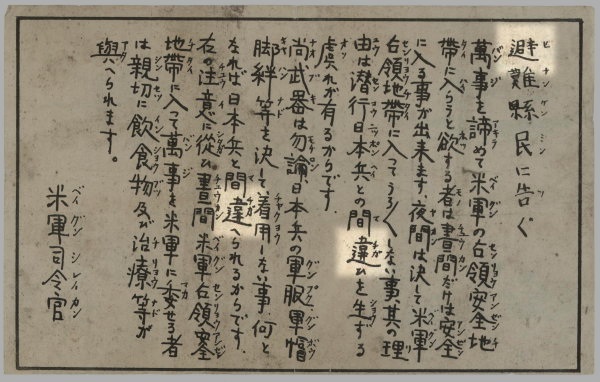 避難縣民に告ぐ
萬事を諦めて米軍の占領安全地
帶に入らうと欲する者は晝間だけは安全
に入る事が出来ます。夜間は決して米軍
占領地帶に入つてうろ〱しない事其の理
由は潜行日本兵との間違ひを生ずる
虞れが有るからです。
尚武器は勿論日本兵の軍服軍帽
脚絆等を決して着用しない事。何と
なれば日本兵と間違へられるからです。
右の注意に從ひ晝間米軍占領安全
地帶に入つて萬事を米軍に委せる者
は親切に飲食物及び治療等が
與へられます。
米軍司令官